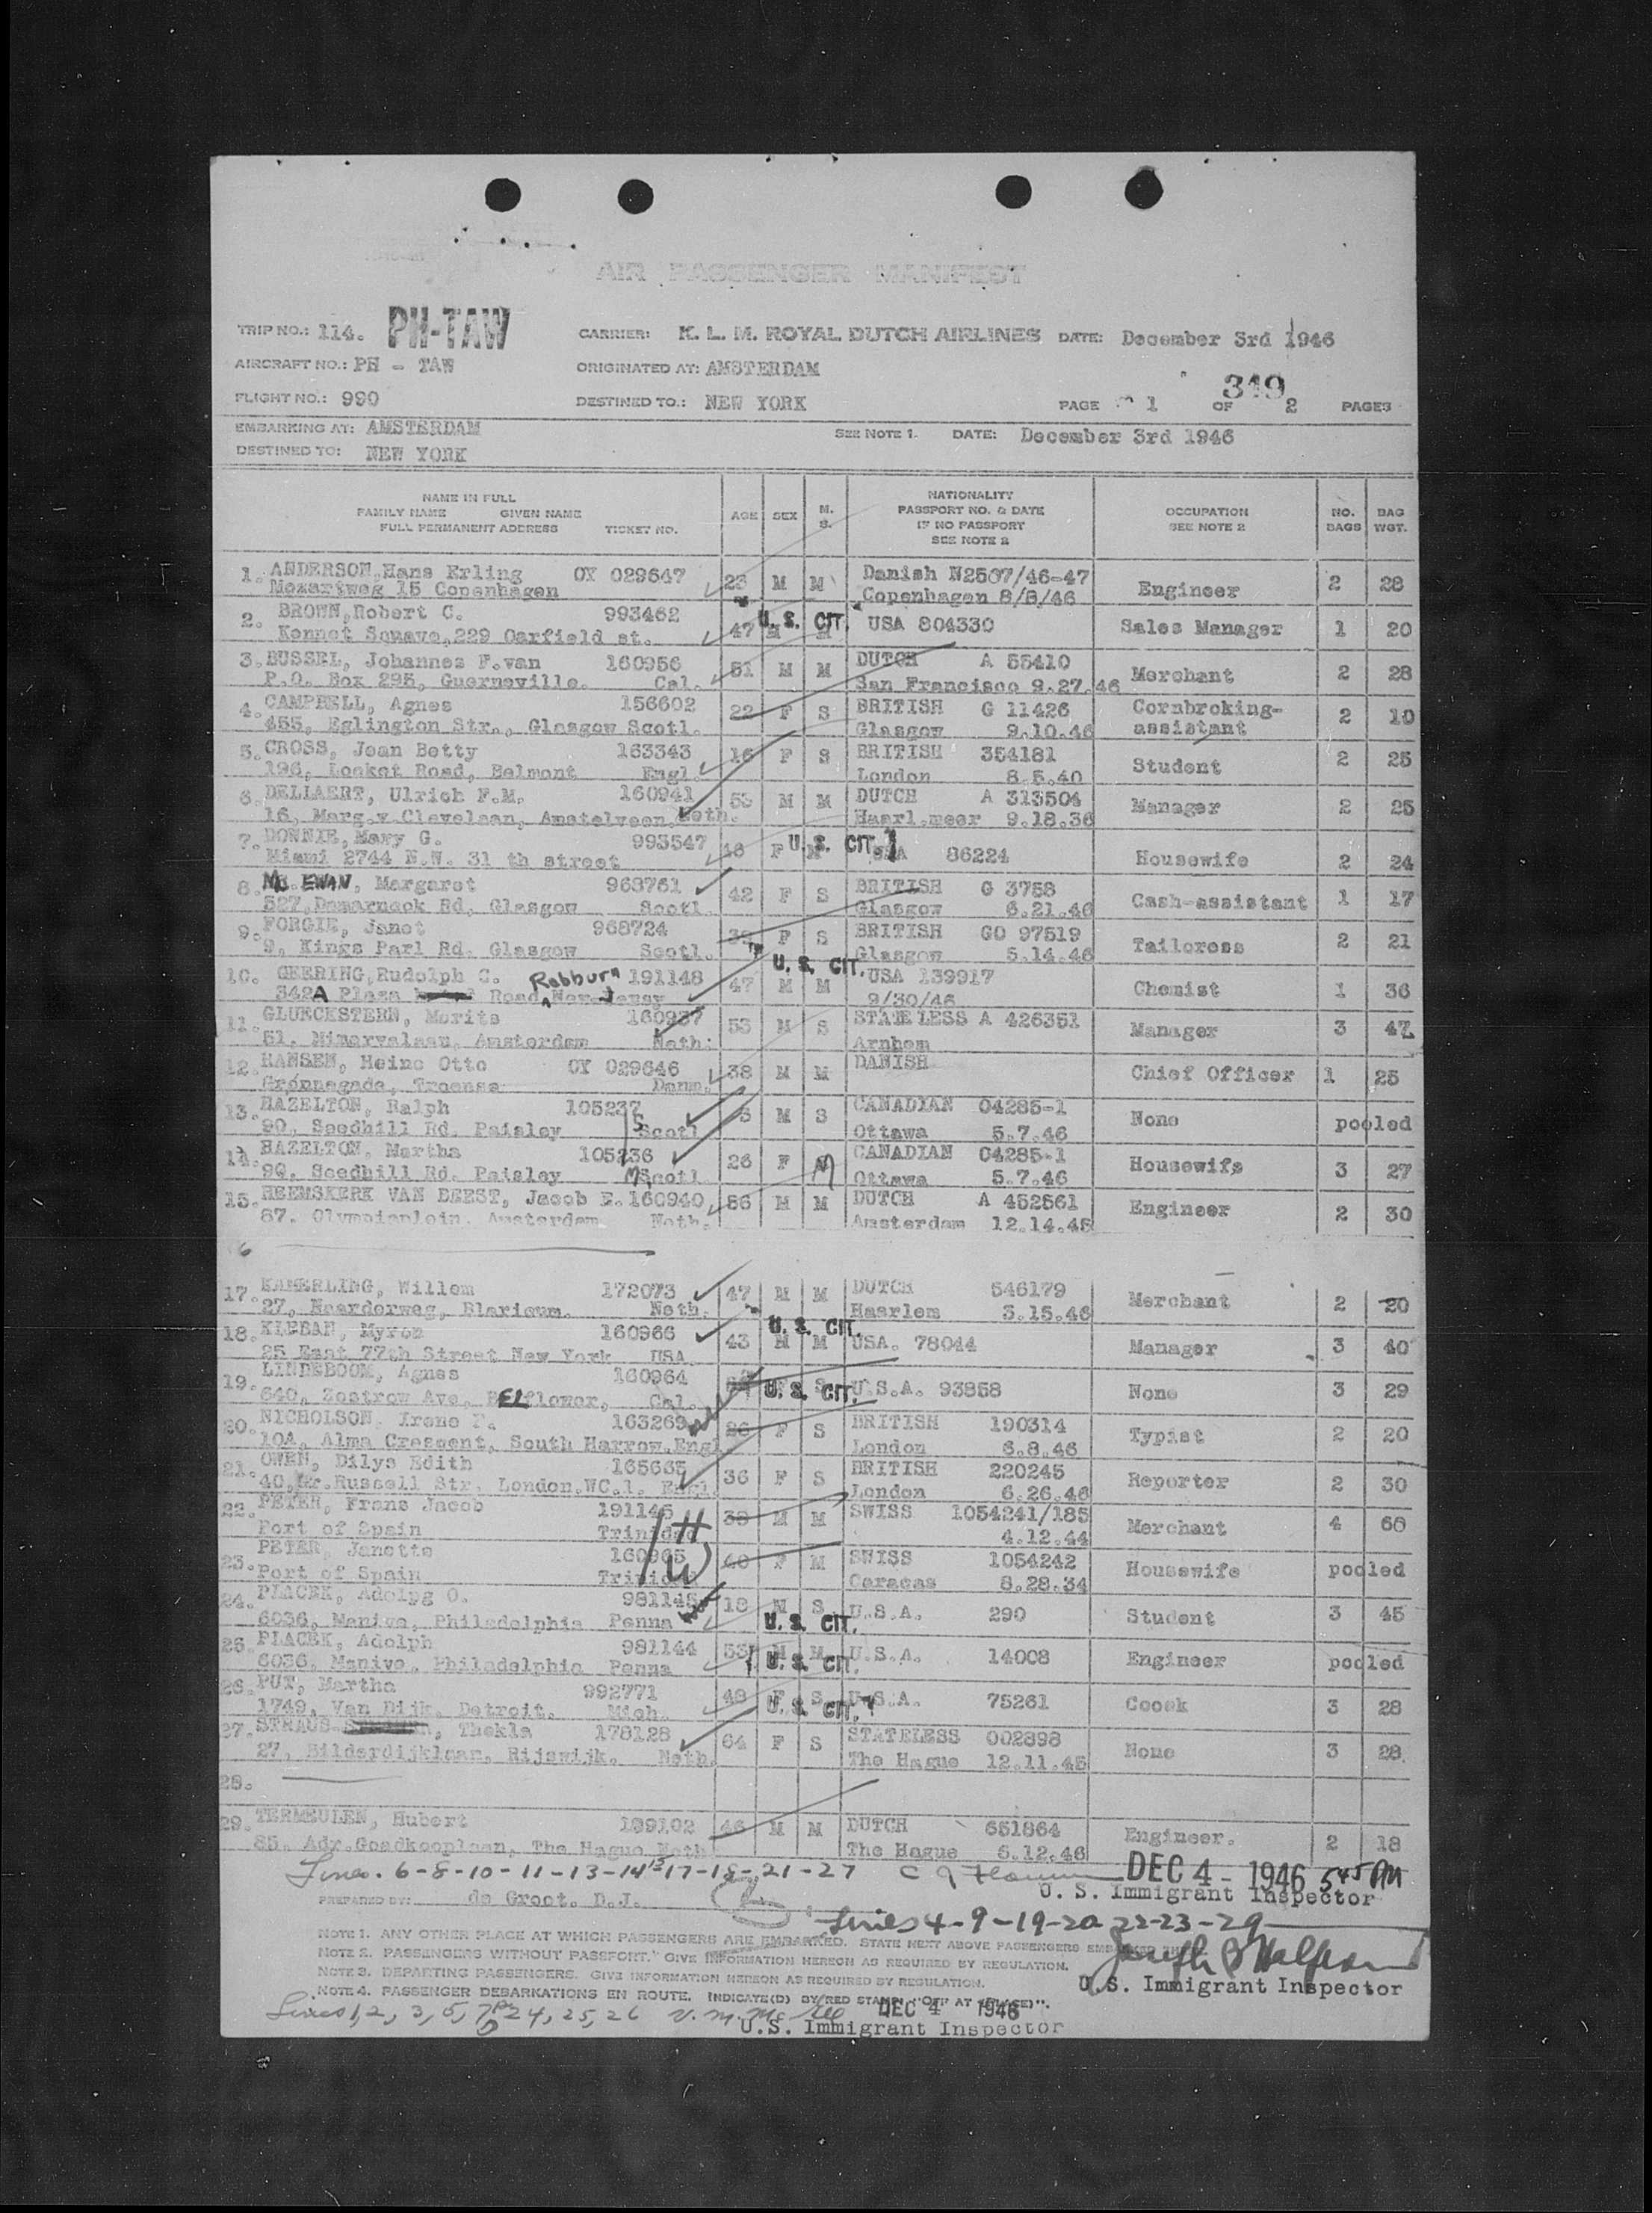 AIR PASSENGER MANIFEST
TRIP NO.: 114. PH-TAW CARRIER: K. L. M. ROYAL DUTCH AIRLINES DATE: December 3rd 1946
AIRCRAFT NO.: PH - TAW ORIGINATED AT: AMSTERDAM
349
FLIGHT NO.: 990 DESTINED TO.: NEW YORK PAGE 1 OF 2 PAGES
EMBARKING AT: AMSTERDAM SEE NOTE 1. DATE: December 3rd 1946
DESTINED TO: NEW YORK
NAME IN FULL
FAMILY NAME GIVEN NAME
FULL PERMANENT ADDRESS TICKET NO.
AGE SEX M. S.
NATIONALITY
PASSPORT NO. & DATE
IF NO PASSPORT
SEE NOTE 2
OCCUPATION
SEE NOTE 2
NO. BAGS
BAG WGT.
1. ANDERSON, Hans Erling OY 029647 23 M M Danish N2507/46-47 Engineer 2 28
Mozartweg 15 Copenhagen Copenhagen 8/8/46
2. BROWN, Robert C. 993462 47 M M U. S. CIT. USA 804330 Sales Manager 1 20
Kennet Square, 229 Garfield st.
3. BUSSEL, Johannes F. van 160956 51 M M DUTCH A 55410 Merchant 2 28
P.O. Box 295, Guerneville. Cal. San Francisco 9.27.46
4. CAMPBELL, Agnes 156602 22 F S BRITISH G 11426 Cornbroking- 2 10
455, Eglington Str., Glasgow Scotl. Glasgow 9.10.46 assistant
5. CROSS, Jean Betty 163343 16 F S BRITISH 354181 Student 2 25
196, Locket Road, Belmont Engl. London 8.5.40
6. DELLAERT, Ulrich F.M. 160941 53 M M DUTCH A 313504 Manager 2 25
16, Marg.v.Clevelaan, Amstelveen. Neth. Haarl.meer 9.18.36
7. DONNIE, Mary G. 993547 F U. S. CIT. USA 86224 Housewife 2 24
Miami 2744 N.W. 31 th street
8. Mc EWAN, Margaret 968761 42 F S BRITISH G 3758 Cash-assistant 1 17
527, Damarnock Rd, Glasgow Scotl. Glasgow 6.21.46
9. FORGIE, Janet 968724 F S BRITISH GO 97519 Tailoress 2 21
9, Kings Parl Rd. Glasgow Scotl. Glasgow 5.14.46
10. GEERING, Rudolph C. 191148 47 M M U. S. CIT. USA 139917 Chemist 1 36
342A Plaza Road, Radburn New Jersy 9/30/46
11. GLUECKSTERN, Morits 160937 53 M S STATELESS A 426351 Manager 3 47
51, Minervalaan, Amsterdam Neth: Arnhem
12. HANSEN, Heino Otto OY 029646 38 M M DANISH Chief Officer 1 25
Grønnegade, Troense Danm.
13. HAZELTON, Ralph 105237 M S CANADIAN 04285-1 None pooled
90, Seedhill Rd. Paisley Scotl Ottawa 5.7.46
14. HAZELTON, Martha 105236 26 F M CANADIAN 04285-1 Housewife 3 27
90, Seedhill Rd. Paisley Scotl Ottawa 5.7.46
15. HEEMSKERK VAN BEEST, Jacob E. 160940 56 M M DUTCH A 452561 Engineer 2 30
87, Olympiaplein, Amsterdam Neth. Amsterdam 12.14.45
17. KAMERLING, Willem 172073 47 M M DUTCH 546179 Merchant 2 20
27, Naarderweg, Blaricum. Neth. Haarlem 3.15.46
18. KIEBAN, Myron 160966 43 M M U. S. CIT. USA. 78044 Manager 3 40
25 East 77th Street New York USA
19. LINDEBOOM, Agnes 160964 F S U. S. CIT. U.S.A. 93858 None 3 29
640, Zestrow Ave, BELflower, Cal.
20. NICHOLSON, Irene P. 163269 26 F S BRITISH 190314 Typist 2 20
10A, Alma Crescent, South Harrow.Engl London 6.8.46
21. OWEN, Dilys Edith 165665 36 F S BRITISH 220245 Reporter 2 30
40, Gr.Russell Str. London.WC.1. Engl. London 6.26.46
22. PETER, Frans Jacob 191146 38 M M SWISS 1054241/185 Merchant 4 66
Port of Spain Trinidad 4.12.44
23. PETER, Janette 160965 40 F M SWISS 1054242 Housewife pooled
Port of Spain Trinidad Caracas 8.28.34
24. PLACEK, Adolpg O. 981145 18 M S U. S. CIT. U.S.A. 290 Student 3 45
6036, Manive, Philadelphia Penna
25. PLACEK, Adolph 981144 53 M M U. S. CIT. U.S.A. 14008 Engineer pooled
6036, Manive, Philadelphia Penna
26. PUT, Martha 992771 48 F S U. S. CIT. U.S.A. 75261 Coook 3 28
1749, Van Dijk, Detroit. Mich.
27. STRAUS, Thekla 178128 64 F S STATELESS 002898 None 3 28
27, Bilderdijklaan, Rijswijk. Neth. The Hague 12.11.45
28.
29. TERMEULEN, Hubert 189102 46 M M DUTCH 651864 Engineer. 2 18
85, Adr.Goedkooplaan, The Hague Neth The Hague 6.12.46
Lines. 6-8-10-11-13-14-15-17-18-21-27 DEC 4 - 1946 5 45 PM
U. S. Immigrant Inspector
PREPARED BY: de Groot. D.J.
Lines 4-9-19-20 22-23-29
NOTE 1. ANY OTHER PLACE AT WHICH PASSENGERS ARE EMBARKED. STATE NEXT ABOVE PASSENGERS
NOTE 2. PASSENGERS WITHOUT PASSPORT. GIVE INFORMATION HEREON AS REQUIRED BY REGULATION.
NOTE 3. DEPARTING PASSENGERS. GIVE INFORMATION HEREON AS REQUIRED BY REGULATION.
U.S. Immigrant Inspector
NOTE 4. PASSENGER DEBARKATIONS EN ROUTE. INDICATE(D) BY RED STAMP "OFF AT (PLACE)".
Lines 1, 2, 3, 5, 7, 24, 25, 26 DEC 4 1946
U.S. Immigrant Inspector